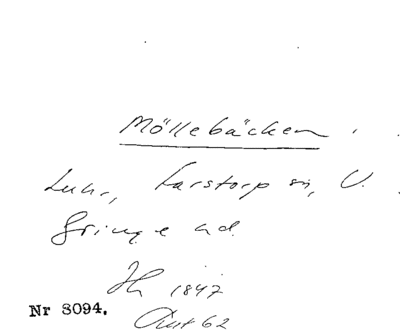 Möllebäcken
Luhr, Farstorp sn, V.
Göinge hd.
1847
Nr 8094.
62